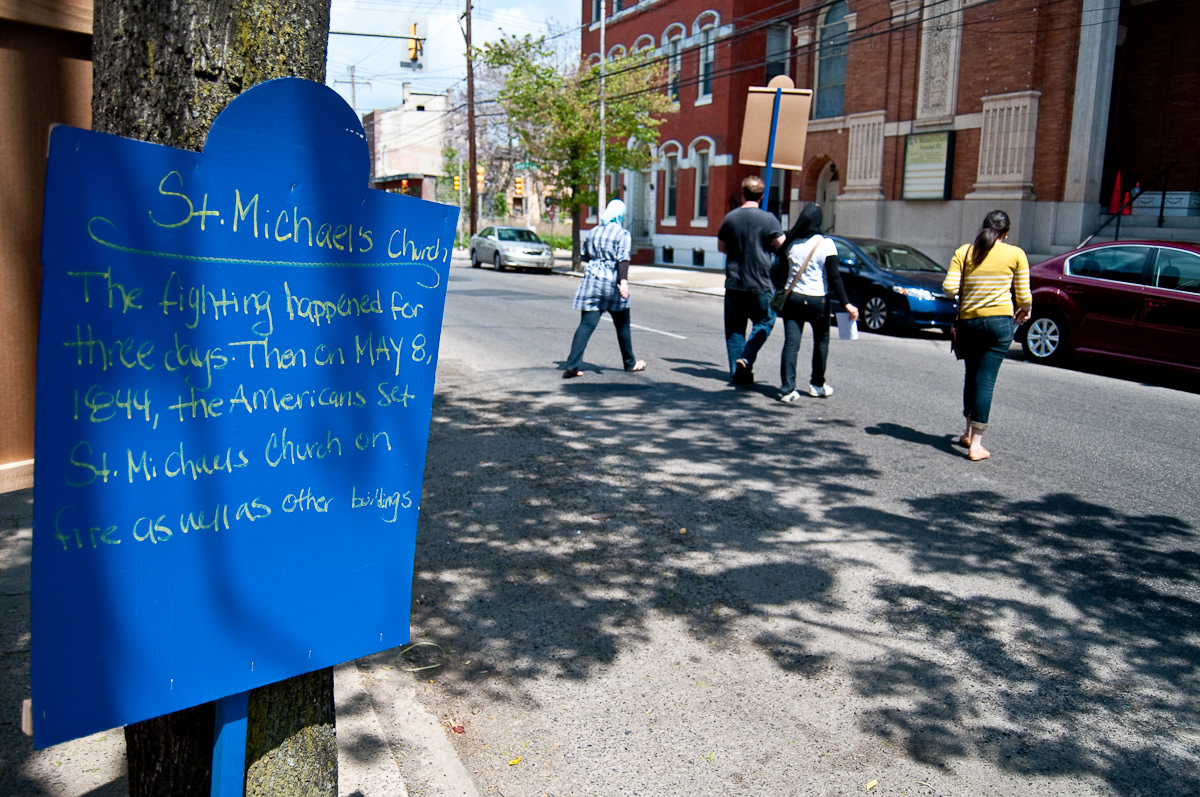 St. Michael's Church
The fighting happened for
three days. Then on MAY 8,
1844, the Americans set
St. Michaels Church on
fire as well as other buildings.